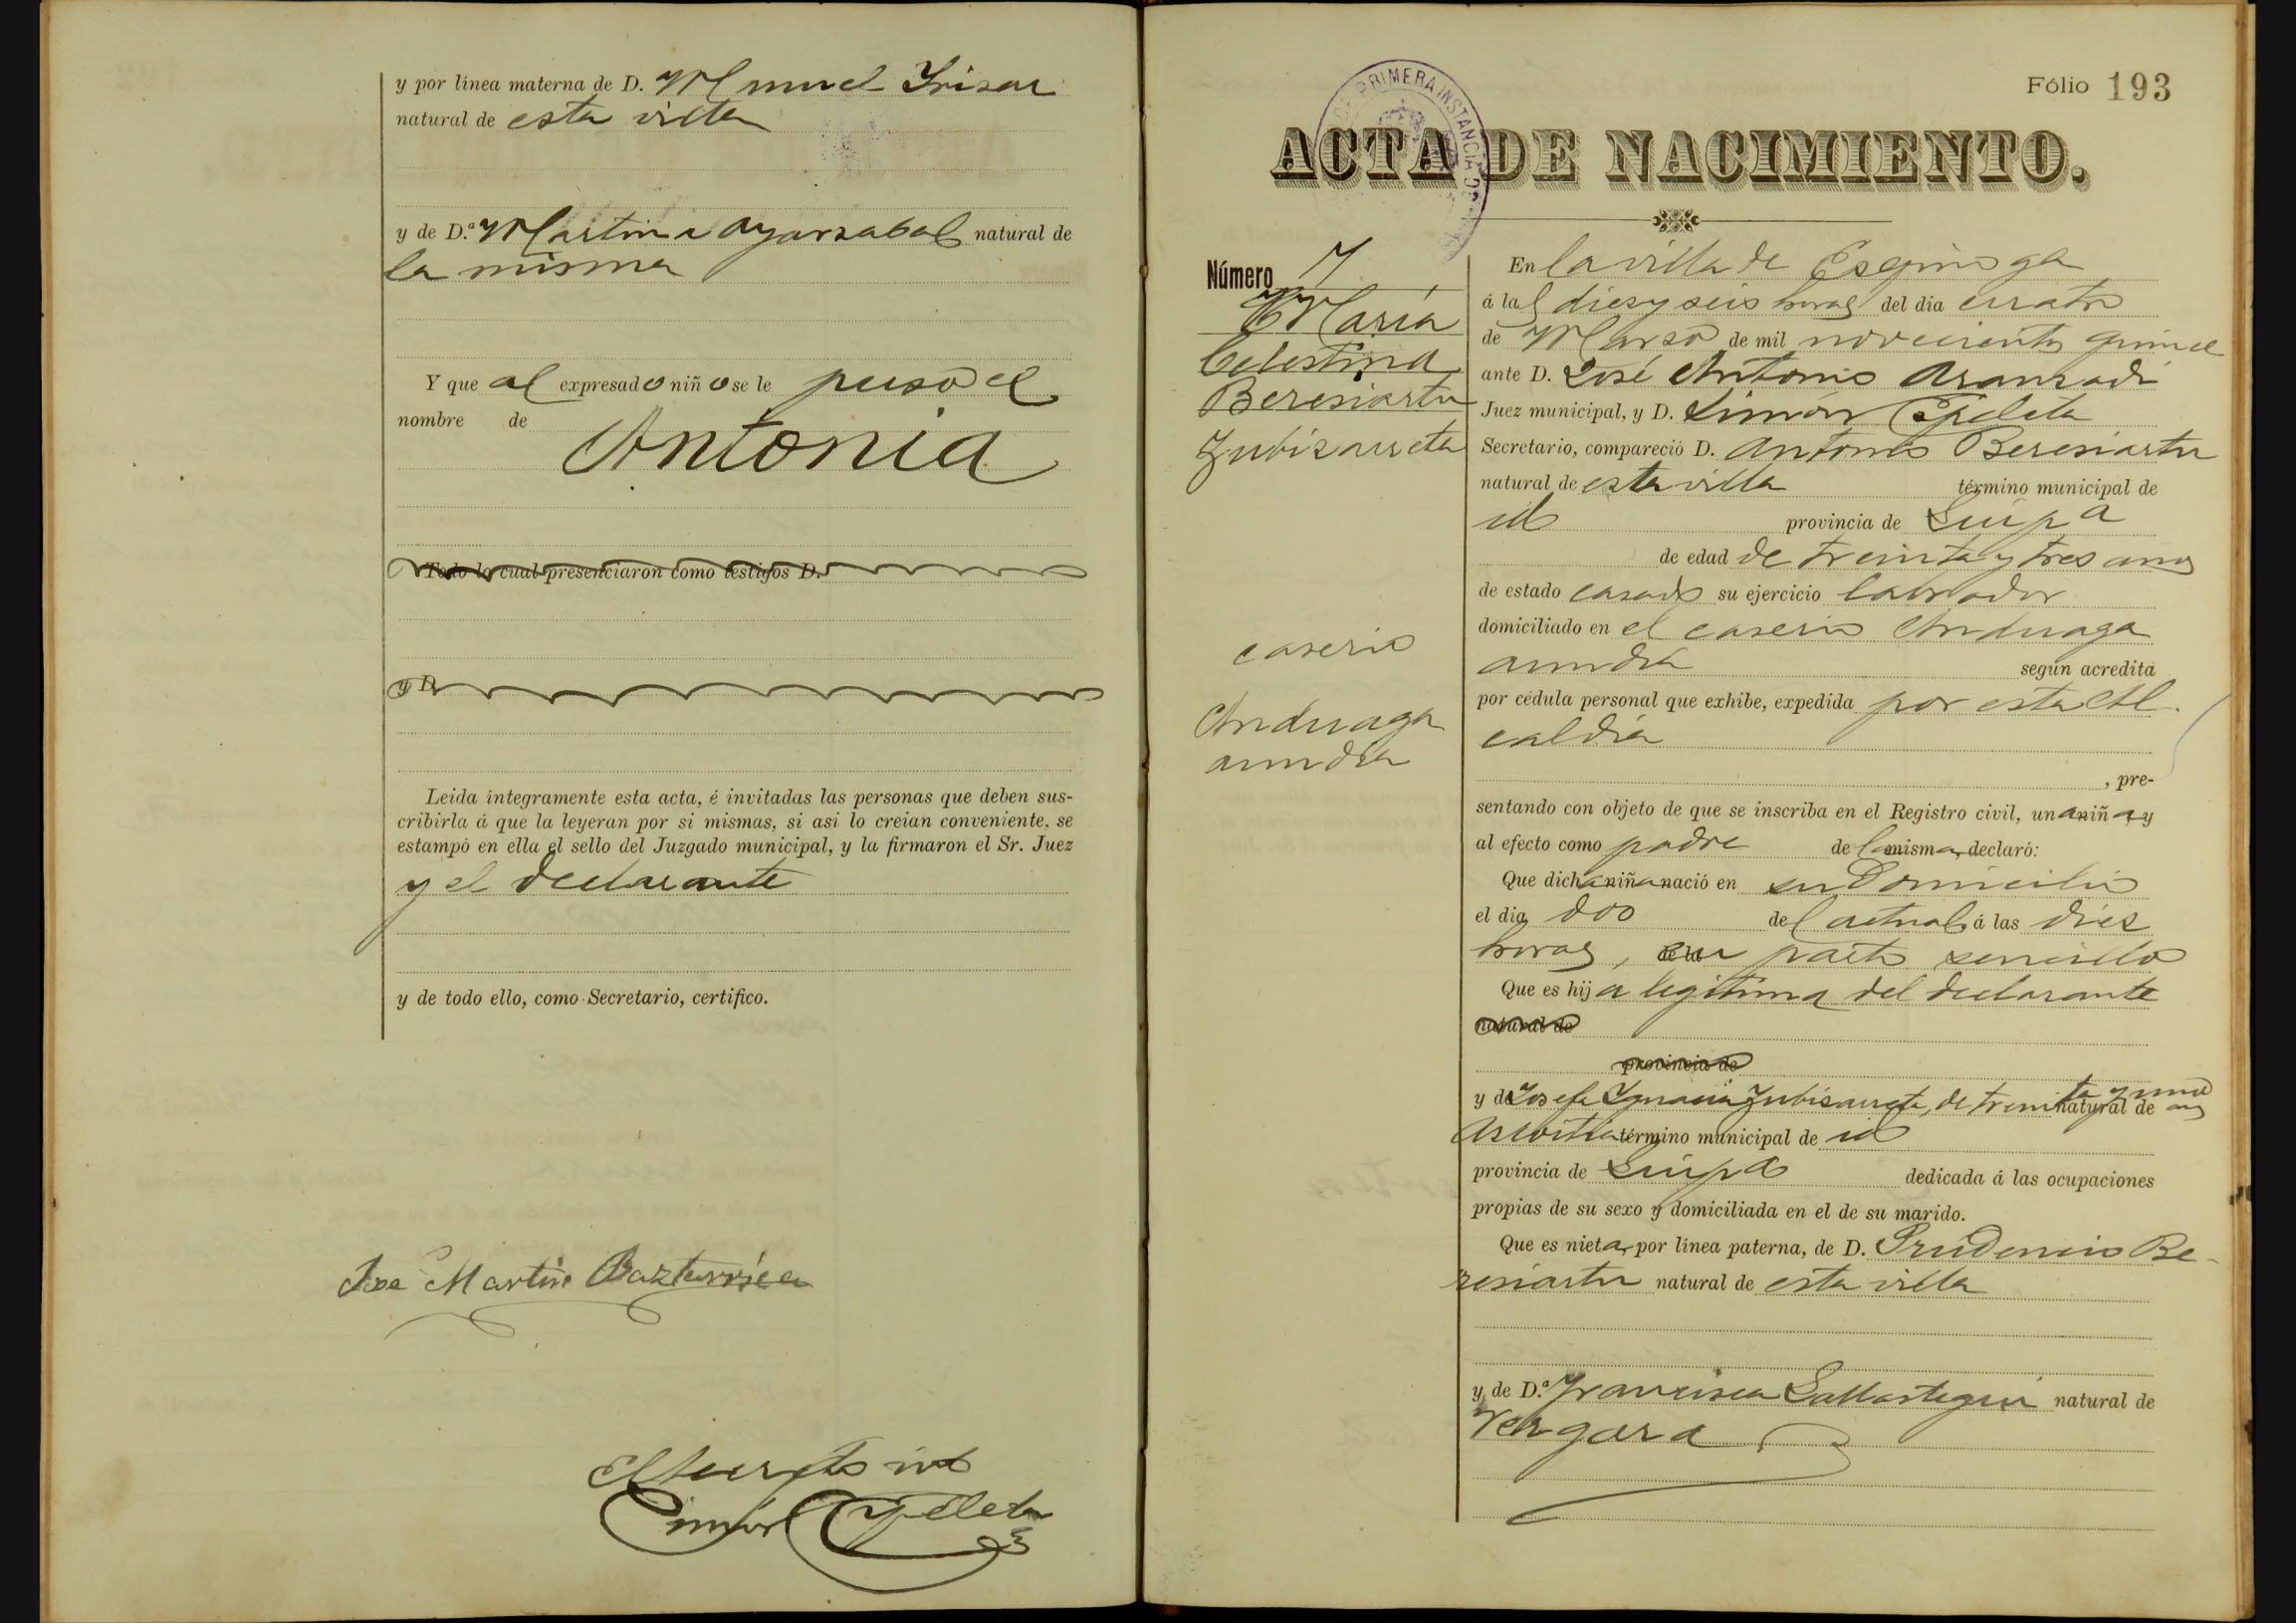 y por línea materna de D. Manuel Yrisar
natural de esta villa
y de D.ª Martina Ayarzabal natural de
la misma
Y que al expresado niño se le puso el
nombre de
Antonia
Todo lo cual presenciaron como testigos D.
y D.
Leida íntegramente esta acta, é invitadas las personas que deben sus-
cribirla á que la leyeran por si mismas, si asi lo creían conveniente, se
estampó en ella el sello del Juzgado municipal, y la firmaron el Sr. Juez
y el declarante
y de todo ello, como Secretario, certifico.
Jose Martin Bazturrica
El Secretario
Simón Epeleta
Fólio 193
DE PRIMERA INSTANCIA DE
ACTA DE NACIMIENTO.
Número 7
María
Celestina
Beresiartu
Zubizarreta
caserio
Anduaga
aundia
En la villa de Ezquioga
á las diez y seis horas del dia cuatro
de Marzo de mil novecientos quince
ante D. José Antonio Aranzadi
Juez municipal, y D. Simón Epeleta
Secretario, compareció D. Antonio Beresiartu
natural de esta villa término municipal de
id provincia de Guipª
de edad de treinta y tres años
de estado casado su ejercicio labrador
domiciliado en el caserio Anduaga
aundia según acredita
por cédula personal que exhibe, expedida por esta Al-
caldía
, pre-
sentando con objeto de que se inscriba en el Registro civil, una niña y
al efecto como padre de la misma declaró:
Que dicha niña nació en su domicilio
el dia dos del actual á las diez
horas, en parto sencillo
Que es hija legítima del declarante
natural de
provincia de
y de Josefa Ygnacia Zubizarreta, de treinta y un años natural de
Azcoitia término municipal de id
provincia de Guipª dedicada á las ocupaciones
propias de su sexo y domiciliada en el de su marido.
Que es nieta por línea paterna, de D. Prudencio Be-
resiartu natural de esta villa
y de D.ª Francisca Gallastegui natural de
Vergara